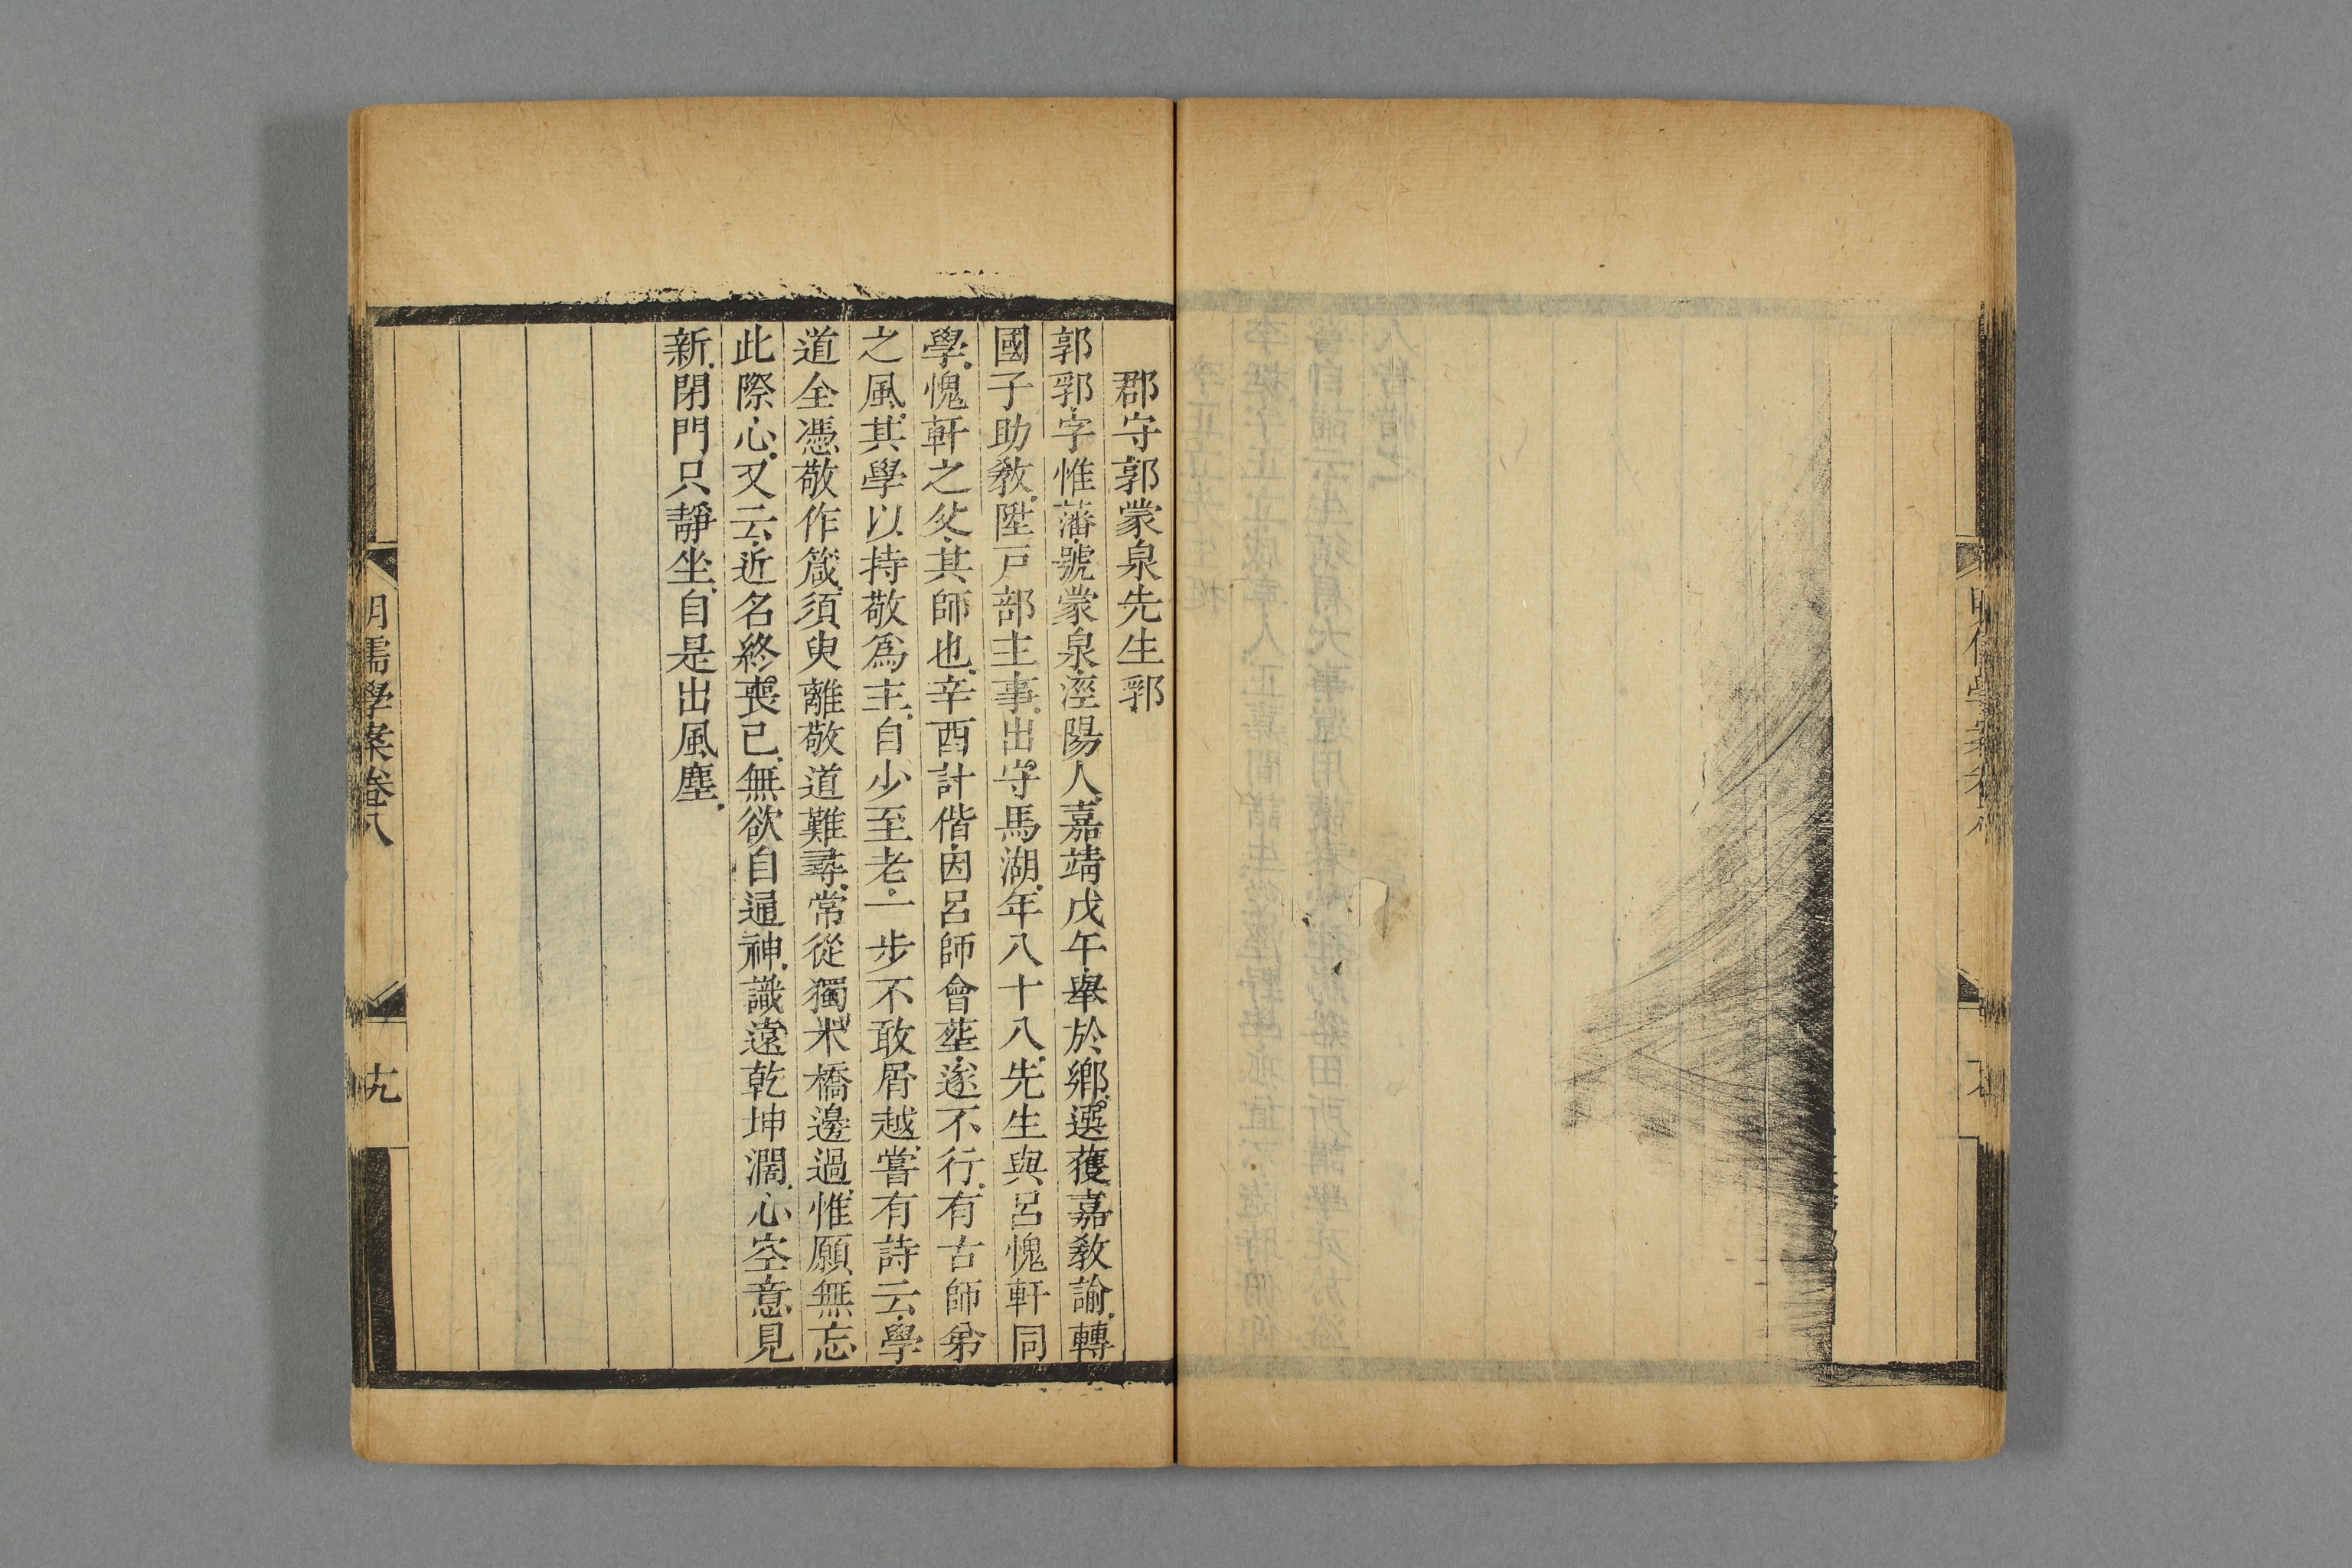 郡守郭蒙泉先生郛
郭郛字惟藩號蒙泉涇陽人嘉靖戊午舉於鄉選獲嘉敎諭轉
國子助敎陞戸部主事出守馬湖年八十八先生與呂愧軒同
學愧軒之父其師也辛酉計偕因呂師會塟遂不行有古師弟
之風其學以持敬爲主自少至老一步不敢屑越嘗有詩云學
道全憑敬作箴須臾離敬道難尋常從獨木橋邊過惟願無忘
此際心又云近名終喪已無欲自通神識遠乾坤濶心空意見
新閉門只靜坐自是出風塵
明儒學案卷八
十九